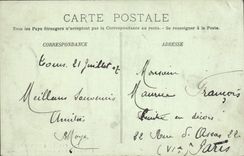 CARTE POSTALE
Tous les Pays étrangers n'acceptent pas la Correspondance au recto. - Se renseigner à la Poste.
CORRESPONDANCE
ADRESSE
Tours, 21 Juillet 07
Meilleurs Souvenirs
Amitiés
Monsieur
Maurice François
Peintre en décors
22 Rue d'Assas 22
(VIe) Paris